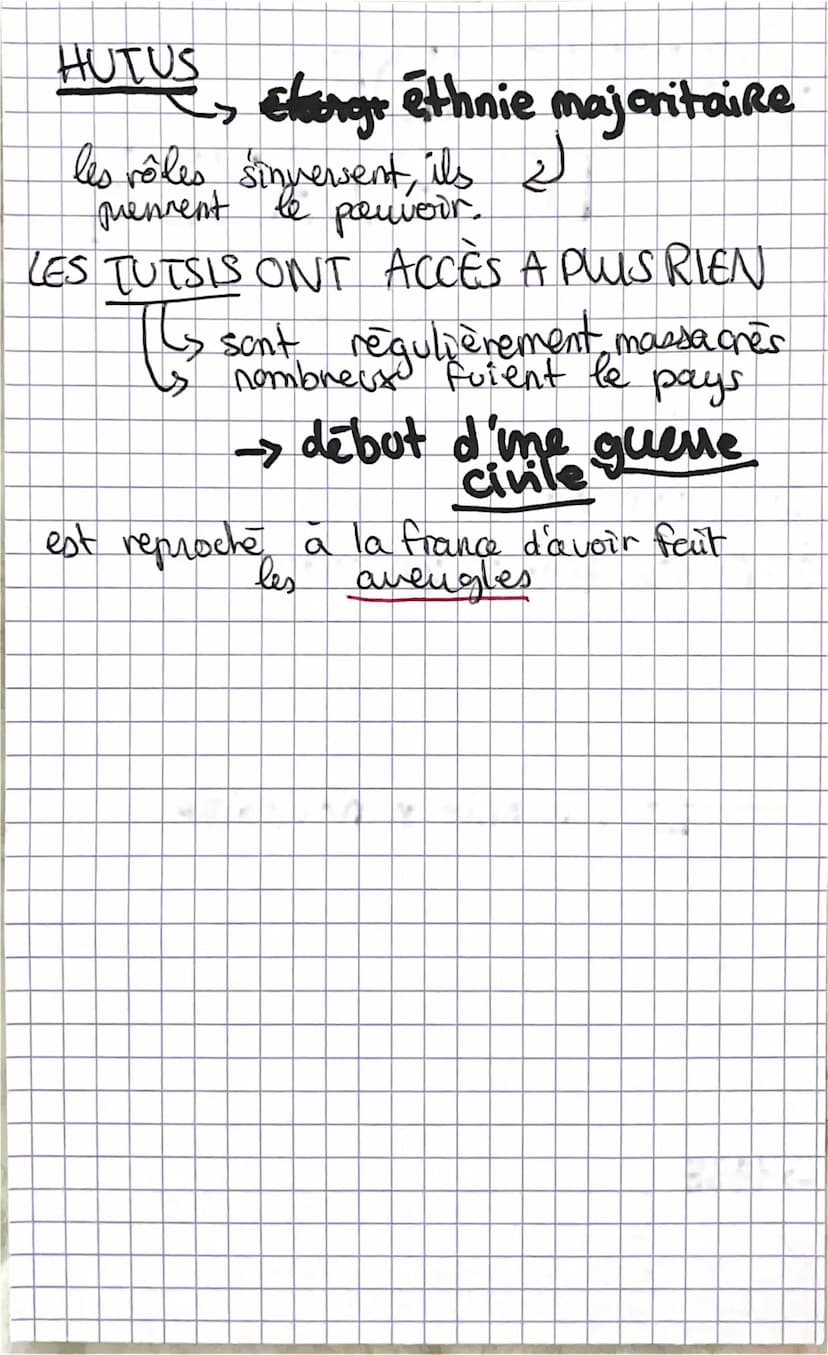 HUTUS
↳ éthnie majoritaire
les rôles s'inversent, ils
prennent le pouvoir.
LES TUTSIS ONT ACCÈS A PLUS RIEN
↳ sont régulièrement massacrés
↳ nombreux fuient le pays
→ début d'une guerre
civile
est reproché à la france d'avoir fait
les aveugles